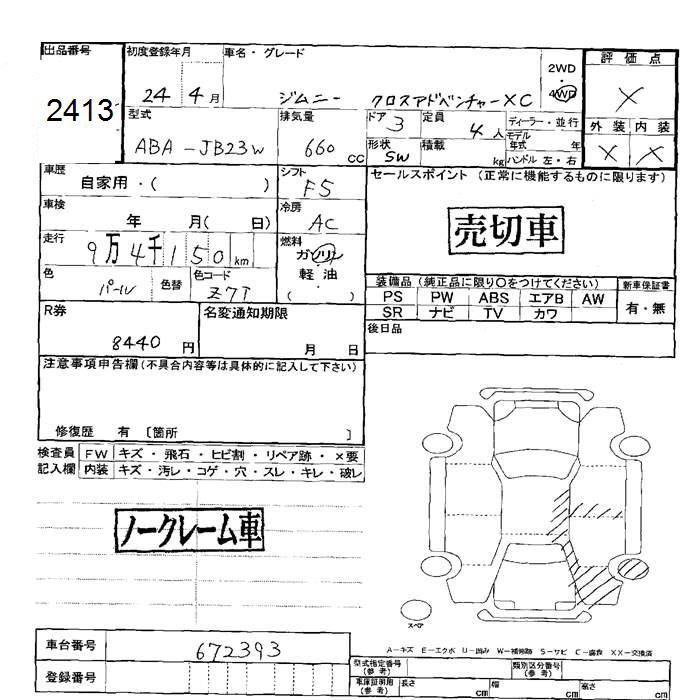 出品番号
2413
初度登録年月
24 4月
車名・グレード
ジムニー クロスアドベンチャーXC
2WD
・
4WD
評価点
X
型式
ABA-JB23W
排気量
660 CC
ドア 3
定員 4人
ディーラー・並行
モデル年式 年
形状 SW
積載 kg
ハンドル 左・右
外装 内装
X X
車歴
自家用・( )
シフト
F5
セールスポイント (正常に機能するものに限ります)
売切車
車検
年 月( 日)
冷房
AC
走行
9万4千150km
燃料
ガソリン
軽油
( )
色
パール
色替
色コード
Z7T
装備品(純正品に限り○をつけてください)
新車保証書
PS PW ABS エアB AW
有・無
SR ナビ TV カワ
R券
8440円
名変通知期限
月 日
後日品
注意事項申告欄(不具合内容等は具体的に記入して下さい)
修復歴 有 〔箇所 〕
検査員記入欄
FW キズ・飛石・ヒビ割・リペア跡・×要
内装 キズ・汚レ・コゲ・穴・スレ・キレ・破レ
ノークレーム車
スペア
A-キズ E-エクボ U-凹み W-補修跡 S-サビ C-腐食 XX-交換済
車台番号
672393
登録番号
型式指定番号(参考)
類別区分番号(参考)
車庫証明用(参考)
長さ cm
幅 cm
高さ cm